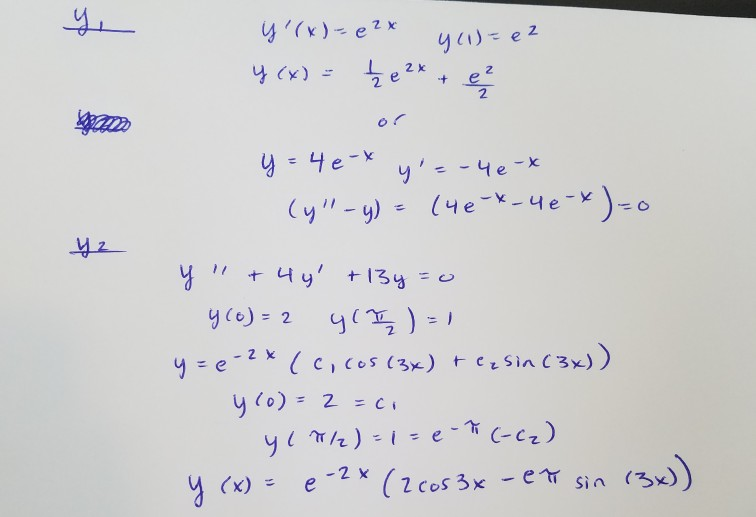 y₁
y'(x) = e^{2x} y(1) = e^2
y(x) = 1/2 e^{2x} + e^2/2
or
y = 4e^{-x} y' = -4e^{-x}
(y'' - y) = (4e^{-x} - 4e^{-x}) = 0
y₂
y'' + 4y' + 13y = 0
y(0) = 2 y(π/2) = 1
y = e^{-2x} (c₁ cos(3x) + c₂ sin(3x))
y(0) = 2 = c₁
y(π/2) = 1 = e^{-π} (-c₂)
y(x) = e^{-2x} (2cos3x - e^π sin(3x))